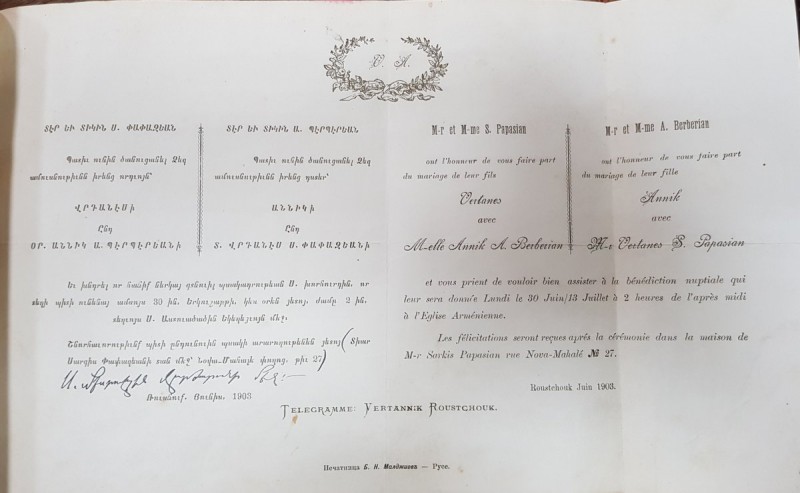 V. A.
ՏԷՐ ԵՒ ՏԻԿԻՆ Ս. ՓԱՓԱԶԵԱՆ
Պատիւ ունին ծանուցանել Ձեզ
ամուսնութիւնն իրենց որդւոյն՝
ՎՐԴԱՆԷՍԻ
Ընդ
ՕՐ. ԱՆՆԻԿ Ա. ՊԷՐՊԷՐԵԱՆԻ
ՏԷՐ ԵՒ ՏԻԿԻՆ Ա. ՊԷՐՊԷՐԵԱՆ
Պատիւ ունին ծանուցանել Ձեզ
ամուսնութիւնն իրենց դստեր՝
ԱՆՆԻԿԻ
Ընդ
Տ. ՎՐԴԱՆԷՍ Ս. ՓԱՓԱԶԵԱՆԻ
Եւ խնդրել որ հաճիք ներկայ գտնուիլ պսակադրութեան Ս. խորհուրդին, որ
տեղի պիտի ունենայ ամսոյս 30 ին, Երկուշաբթի, կէս օրէն յետոյ, ժամը 2 ին,
տեղւոյս Ս. Աստուածածին Եկեղեցւոյն մէջ։
Շնորհաւորութիւնք պիտի ընդունուին պսակի արարողութենէն յետոյ (Տիար
Սարգիս Փափազեանի տան մէջ՝ Նովա-Մահալէ փողոց, թիւ 27)
Ռուսճուք, Յունիս, 1903
M-r et M-me S. Papasian
ont l'honneur de vous faire part
du mariage de leur fils
Vertanes
avec
M-elle Annik A. Berberian
M-r et M-me A. Berberian
ont l'honneur de vous faire part
du mariage de leur fille
Annik
avec
M-r Vertanes S. Papasian
et vous prient de vouloir bien assister à la bénédiction nuptiale qui
leur sera donnée Lundi le 30 Juin/13 Juillet à 2 heures de l'après midi
à l'Eglise Arménienne.
Les félicitations seront reçues aprés la cérémonie dans la maison de
M-r Sarkis Papasian rue Nova-Mahalé № 27.
Roustchouk Juin 1903.
TELEGRAMME: VERTANNIK ROUSTCHOUK.
Печатница Б. Н. Малджиевъ — Русе.